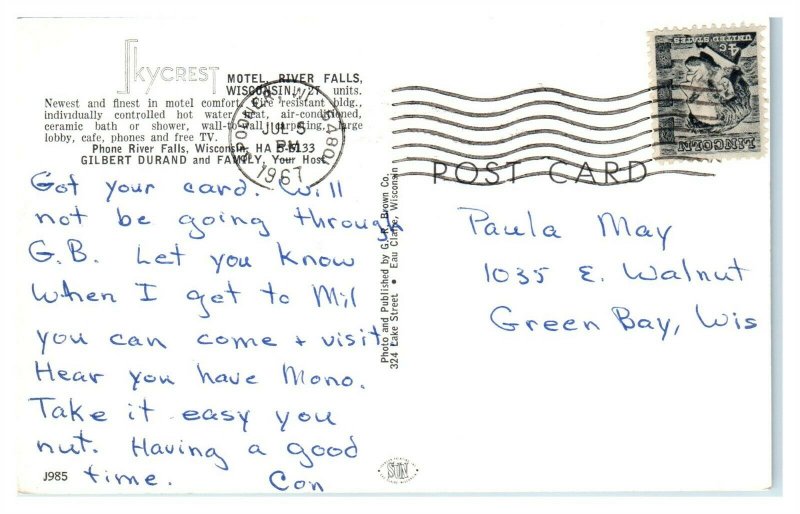 SKYCREST MOTEL, RIVER FALLS,
WISCONSIN, 27 units.
Newest and finest in motel comfort. Fire resistant bldg.,
individually controlled hot water heat, air-conditioned,
ceramic bath or shower, wall-to-wall carpeting, large
lobby, cafe, phones and free TV.
Phone River Falls, Wisconsin, HA 5-6133
GILBERT DURAND and FAMILY, Your Host
Got your card. Will
not be going through
G.B. Let you know
when I get to Mil
you can come + visit
Hear you have Mono.
Take it easy you
nut. Having a good
time. Con
J985
WI 54801
JUL 5
PM
1967
Photo and Published by G. R. Brown Co.
324 Lake Street • Eau Claire, Wisconsin
SUN
POST CARD
4c
UNITED STATES
LINCOLN
Paula May
1035 E. Walnut
Green Bay, Wis